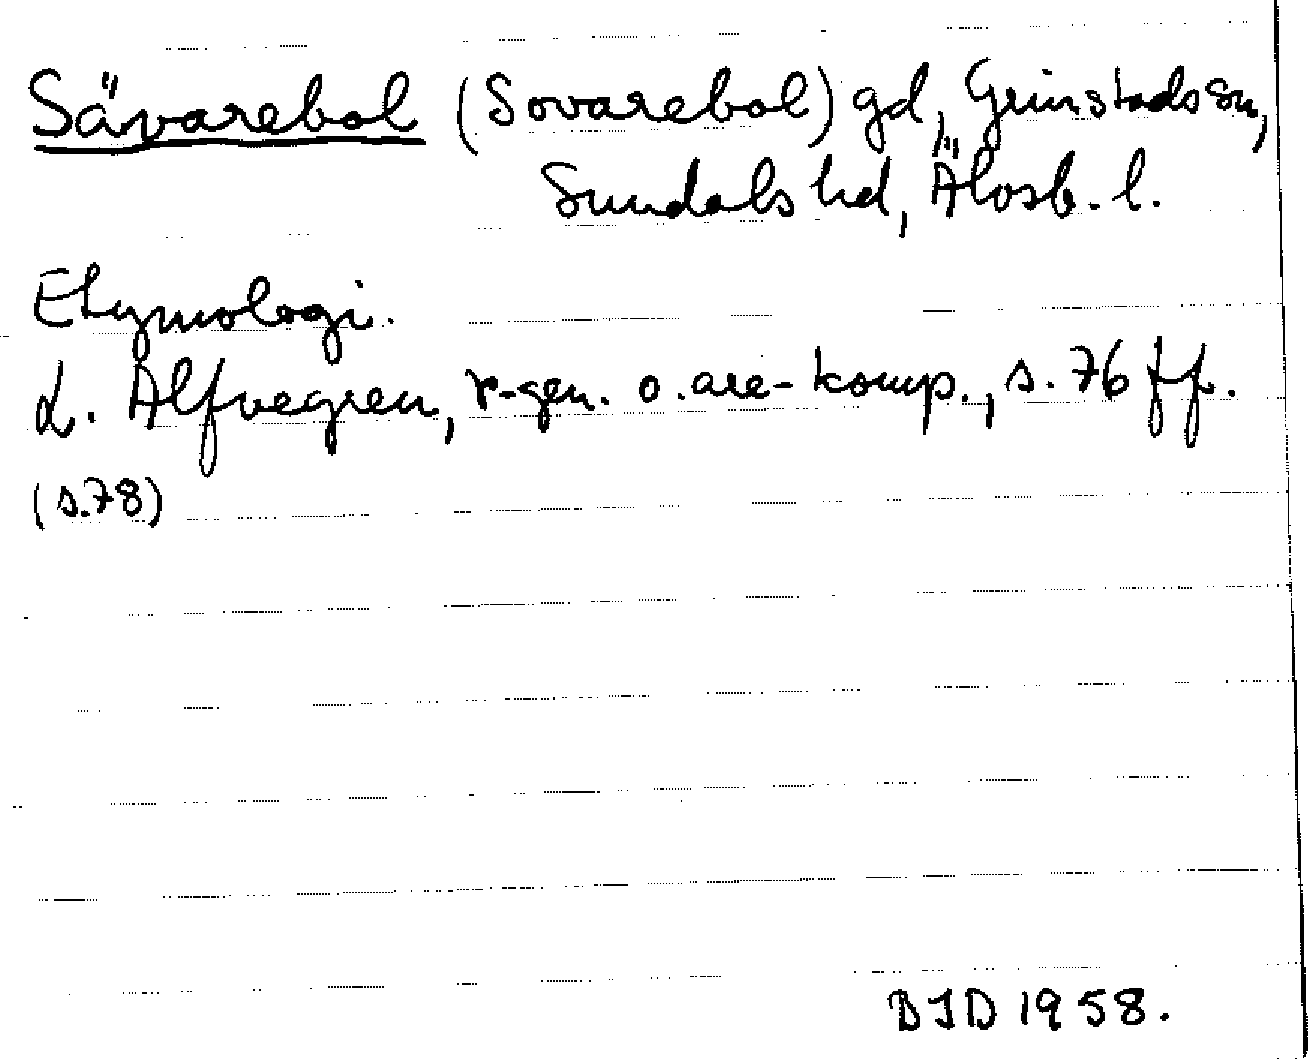 Sävarebol (Sovarebol) gd, Grinstads sn,
Sundals hd, Älvsb. l.
Etymologi.
L. Alfvegren, r-gen. o. are-komp., s. 76 ff.
(s.78)
BJD 1958.